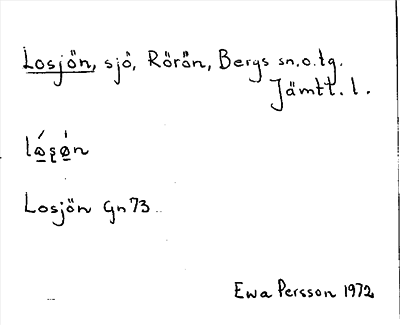 Losjön, sjö, Rörön, Bergs sn.o.tg.
Jämtt. l.
Losjön Gn 73
Ewa Persson 1972